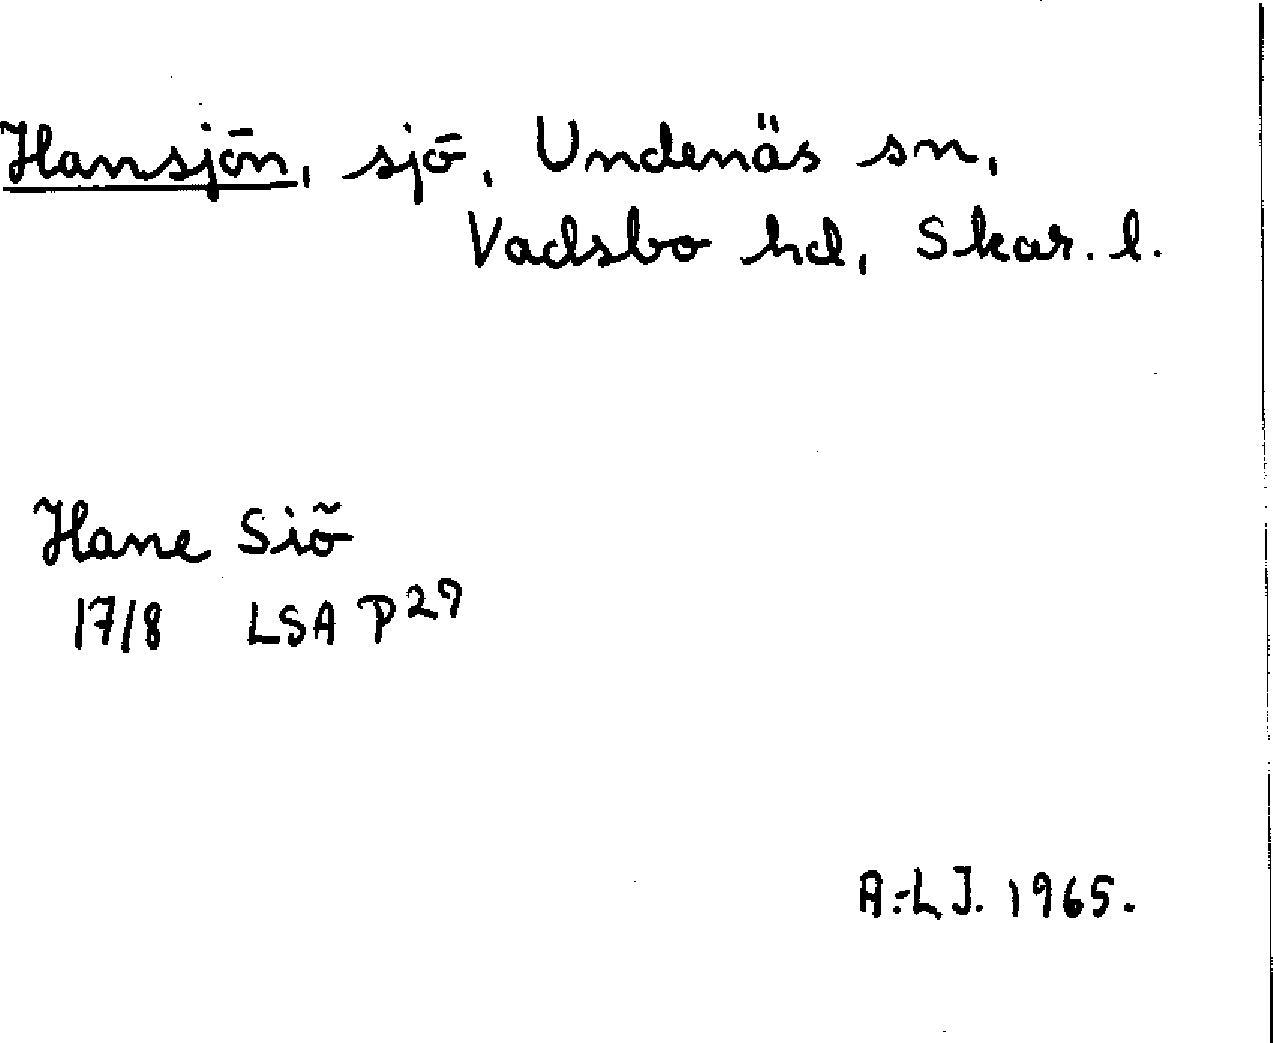 Hansjön, sjö, Undenäs sn,
Vadsbo hd, Skar. l.
Hane Siö
17/8 LSA P27
A.-L J. 1965.